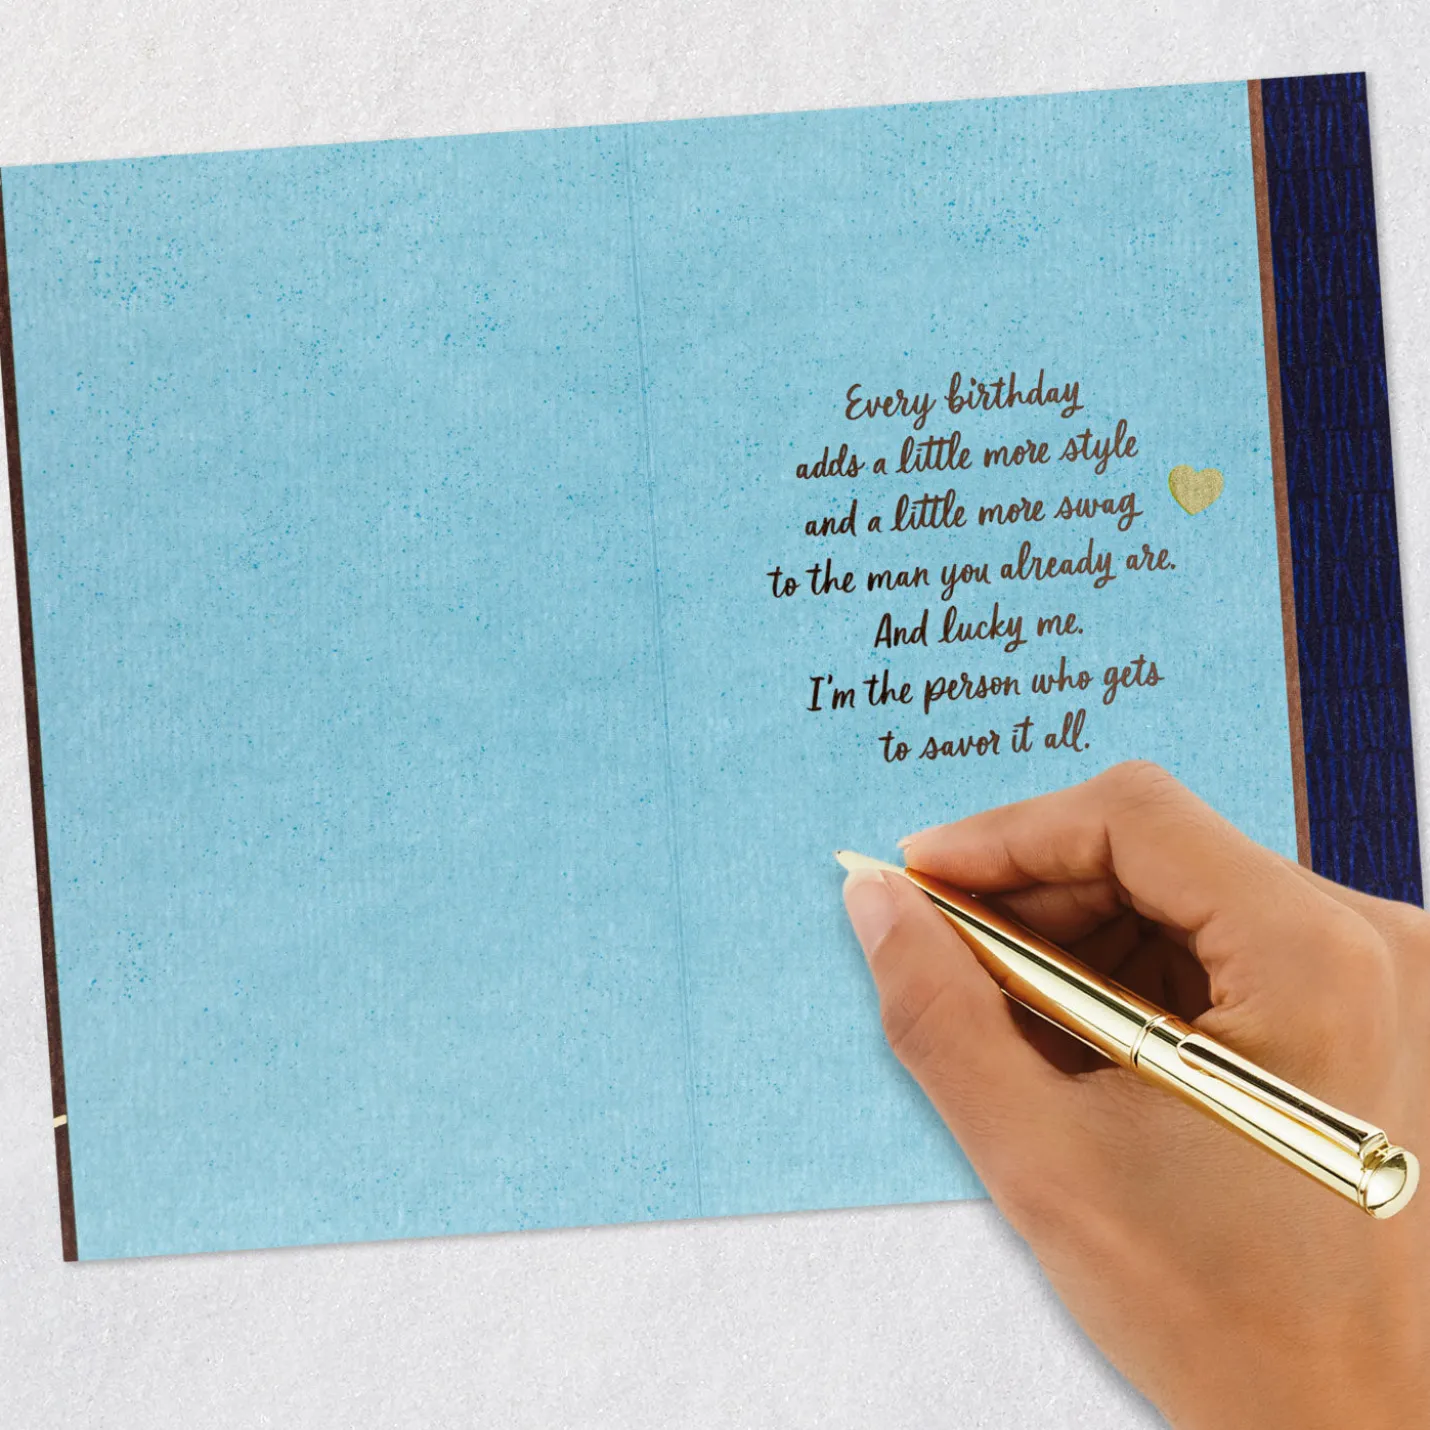 Every birthday
adds a little more style
and a little more swag
to the man you already are.
And lucky me.
I'm the person who gets
to savor it all.